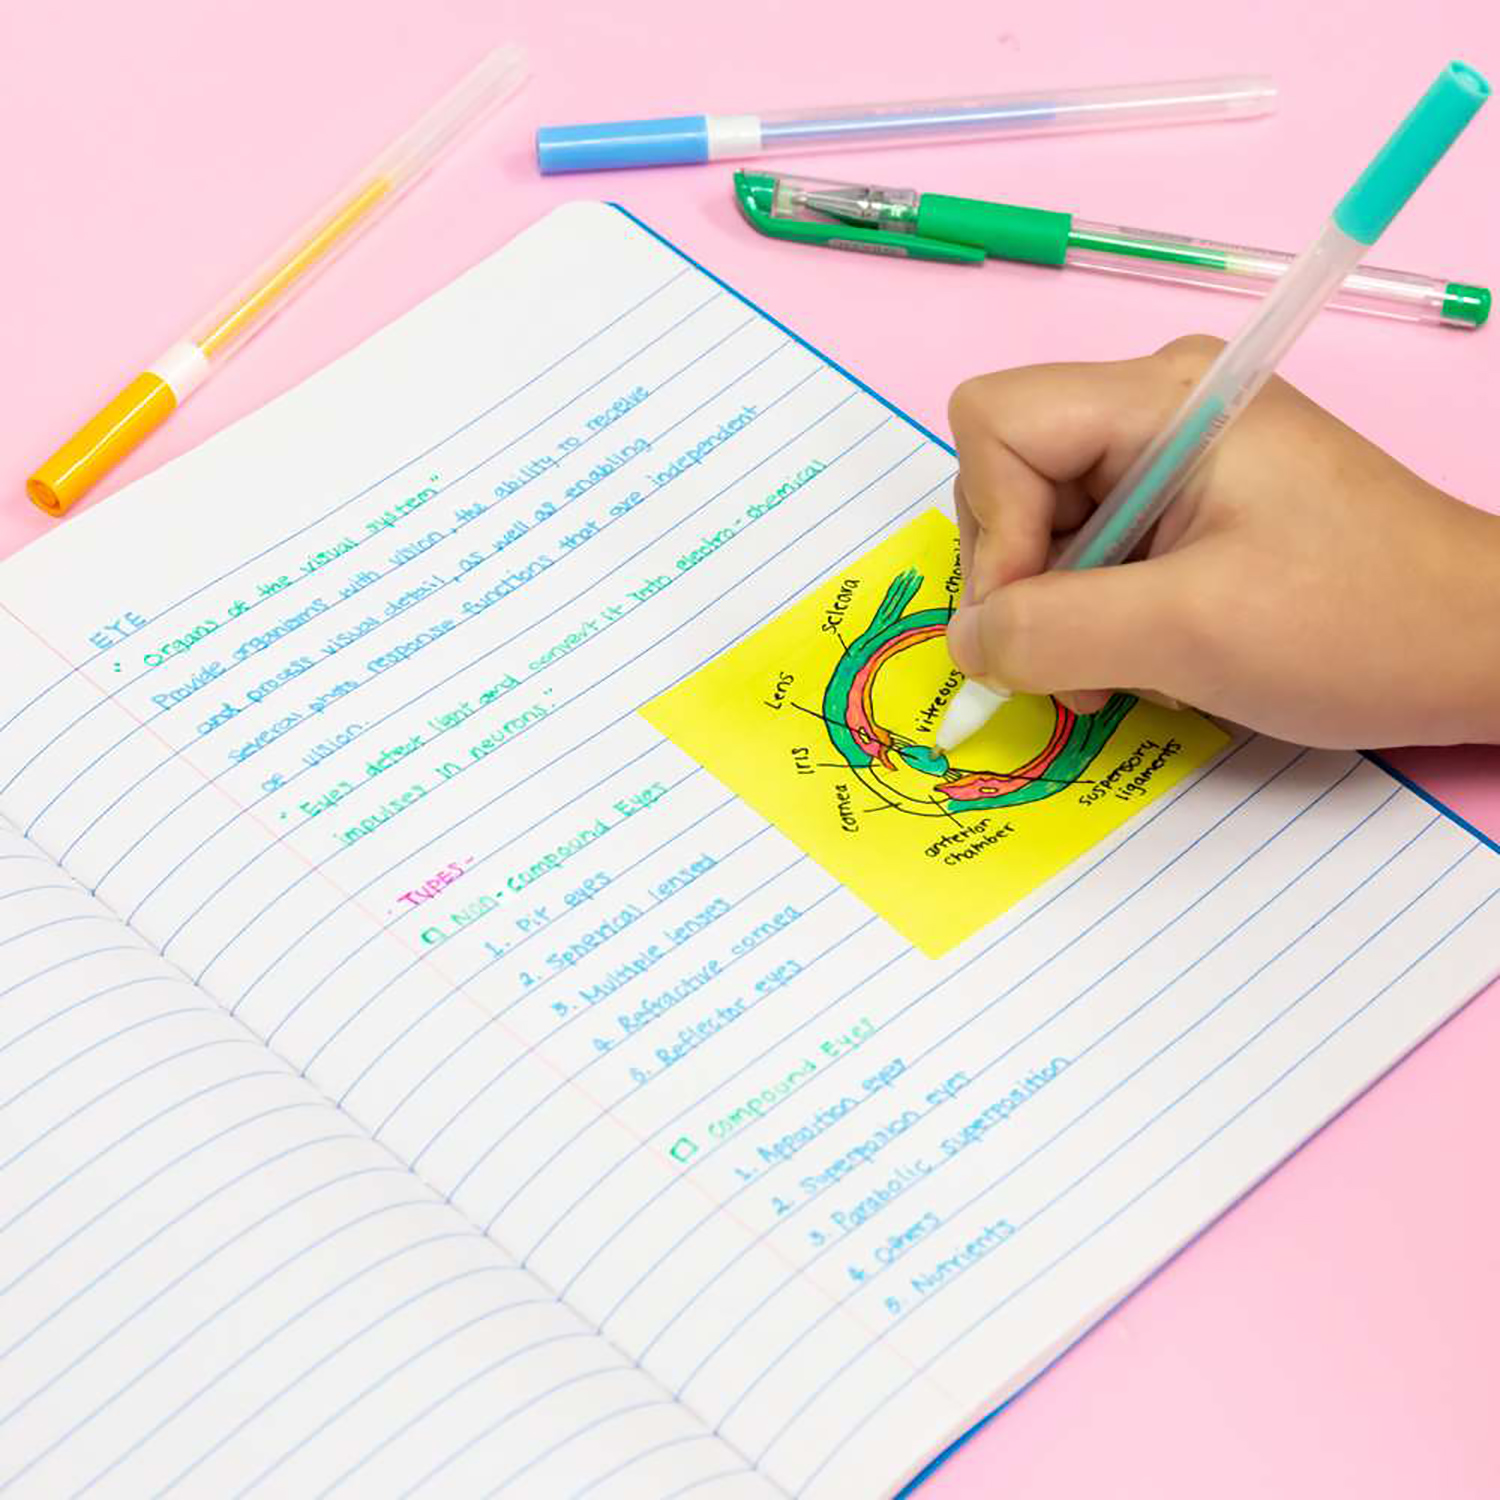 EYE
" Organs of the visual system"
Provide organisms with vision, the ability to receive
and process visual detail, as well as enabling
several photo response functions that are independent
of vision.
" Eyes detect light and convert it into electro-chemical
impulses in neurons."
TYPES-
Non-Compound Eyes
1. Pit eyes
2. Spherical lensed
3. Multiple lenses
4. Refractive cornea
5. Reflector eyes
Compound Eyes
1. Apposition eyes
2. Superposion eyes
3. Parabolic superposition
4. Others
5. Nutrients
scleara
Lens
Iris
cornea
anterior
chamber
vitreous
suspensory
ligaments